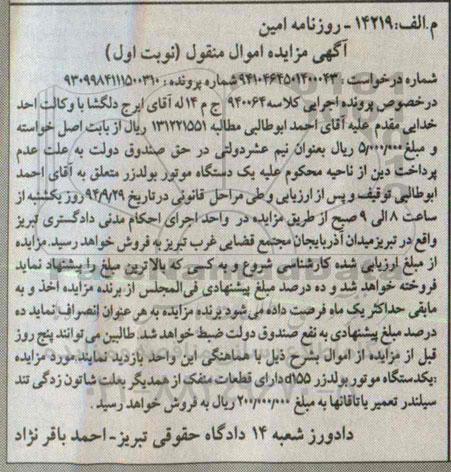 م.الف:۱۴۲۱۹ - روزنامه امین
آگهی مزایده اموال منقول (نوبت اول)
شماره درخواست: ۹۴۱۰۴۶۴۵۰۱۴۰۰۰۴۳ شماره پرونده: ۹۳۰۹۹۸۴۱۱۱۵۰۰۳۱۰
درخصوص پرونده اجرایی کلاسه ۹۴۰۰۶۴ ج م ۱۴ له آقای ایرج دلگشا با وکالت احد
خدایی مقدم علیه آقای احمد ابوطالبی مطالبه ۱۳۱۲۲۱۵۵۱ ریال از بابت اصل خواسته
و مبلغ ۵/۰۰۰/۰۰۰ ریال بعنوان نیم عشردولتی در حق صندوق دولت به علت عدم
پرداخت دین از ناحیه محکوم علیه یک دستگاه موتور بولدزر متعلق به آقای احمد
ابوطالبی توقیف و پس از ارزیابی و طی مراحل قانونی درتاریخ ۹۴/۹/۲۹ روز یکشنبه از
ساعت ۸ الی ۹ صبح از طریق مزایده در واحد اجرای احکام مدنی دادگستری تبریز
واقع در تبریزمیدان آذربایجان مجتمع قضایی غرب تبریز به فروش خواهد رسید.مزایده
از مبلغ ارزیابی شده کارشناسی شروع و به کسی که بالاترین مبلغ را پیشنهاد نماید
فروخته خواهد شد و ده درصد مبلغ پیشنهادی فی‌المجلس از برنده مزایده اخذ و به
مابقی حداکثر یک ماه فرصت داده می‌شود برنده مزایده به هر عنوان انصراف نماید ده
درصد مبلغ پیشنهادی به نفع صندوق دولت ضبط خواهد شد. طالبین می‌توانند پنج روز
قبل از مزایده از اموال بشرح ذیل با هماهنگی این واحد بازدید نمایند.مورد مزایده
:یکدستگاه موتور بولدزر d۱۵۵ دارای قطعات منفک از همدیگر بعلت شاتون زدگی تند
سیلندر تعمیر یاتاقانها به مبلغ ۲۰۰/۰۰۰/۰۰۰ ریال به فروش خواهد رسید.
دادورز شعبه ۱۴ دادگاه حقوقی تبریز- احمد باقر نژاد